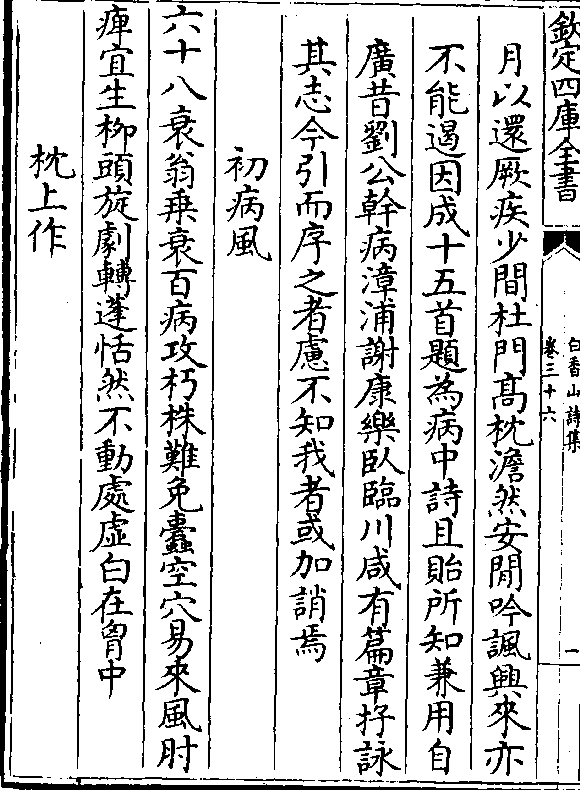 欽定四庫全書
白香山詩集
卷三十六
一
月以還厥疾少間杜門高枕澹然安閒吟諷興來亦
不能遏因成十五首題為病中詩且貽所知兼用自
廣昔劉公幹病漳浦謝康樂臥臨川咸有篇章抒詠
其志今引而序之者慮不知我者或加誚焉
初病風
六十八衰翁乗衰百病攻朽株難免蠧空穴易來風肘
痺宜生栁頭旋劇轉蓬恬然不動處虚白在胷中
枕上作